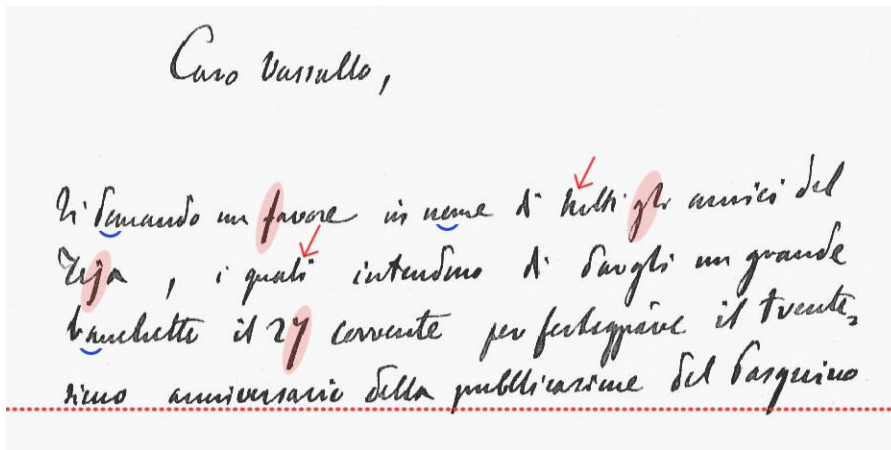 Caro Vassallo,
Ti domando un favore in nome di tutti gli amici del
Teja, i quali intendono di dargli un grande
banchetto il 27 corrente per festeggiare il trente-
simo anniversario della pubblicazione del Pasquino